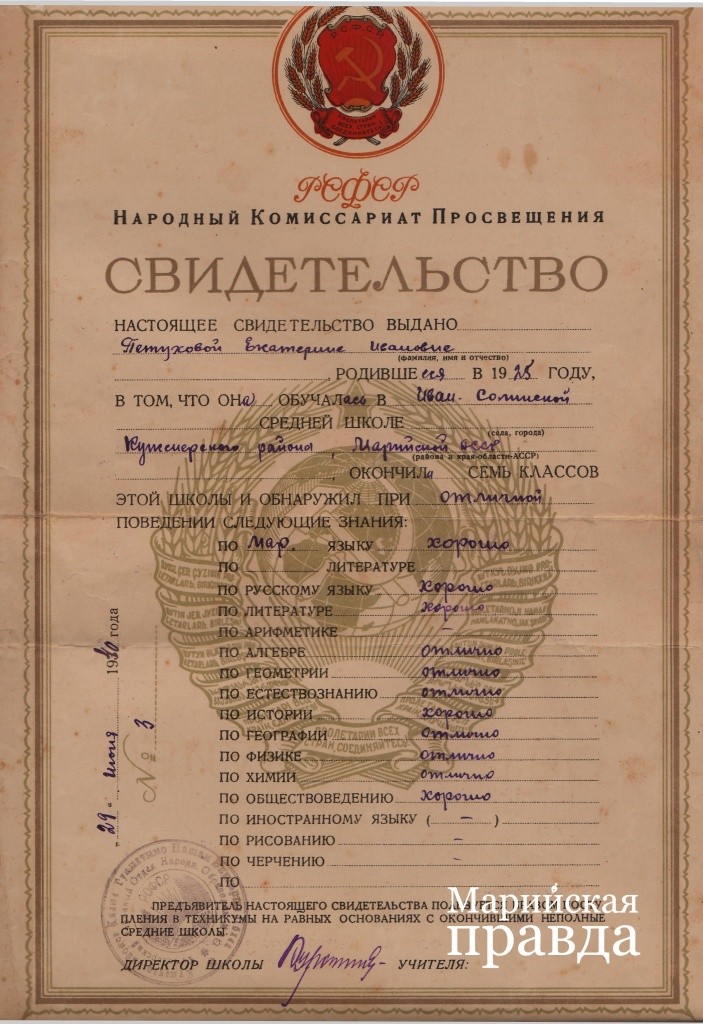 РСФСР
РСФСР
НАРОДНЫЙ КОМИССАРИАТ ПРОСВЕЩЕНИЯ
СВИДЕТЕЛЬСТВО
НАСТОЯЩЕЕ СВИДЕТЕЛЬСТВО ВЫДАНО
Петуховой Екатерине Ивановне
(фамилия, имя и отчество)
, РОДИВШЕ еся В 19 25 ГОДУ,
В ТОМ, ЧТО ОНа ОБУЧАЛась В Иван-Солинской
СРЕДНЕЙ ШКОЛЕ
(села, города)
Куженерского района, Марийской АССР
(района и края-области-АССР)
, ОКОНЧИЛа СЕМЬ КЛАССОВ
ЭТОЙ ШКОЛЫ И ОБНАРУЖИЛ ПРИ отличной
ПОВЕДЕНИИ СЛЕДУЮЩИЕ ЗНАНИЯ:
ПО Мар. ЯЗЫКУ хорошо
ПО ЛИТЕРАТУРЕ
ПО РУССКОМУ ЯЗЫКУ хорошо
ПО ЛИТЕРАТУРЕ хорошо
ПО АРИФМЕТИКЕ -
ПО АЛГЕБРЕ отлично
ПО ГЕОМЕТРИИ отлично
ПО ЕСТЕСТВОЗНАНИЮ отлично
ПО ИСТОРИИ хорошо
ПО ГЕОГРАФИИ отлично
ПО ФИЗИКЕ отлично
ПО ХИМИИ отлично
ПО ОБЩЕСТВОВЕДЕНИЮ хорошо
ПО ИНОСТРАННОМУ ЯЗЫКУ ( – )
ПО РИСОВАНИЮ -
ПО ЧЕРЧЕНИЮ -
ПО
ПРОЛЕТАРИИ ВСЕХ
СТРАН, СОЕДИНЯЙТЕСЬ!
„29" июня 1940 года
№ 3
ПРЕДЪЯВИТЕЛЬ НАСТОЯЩЕГО СВИДЕТЕЛЬСТВА
ПЛЕНИЯ В ТЕХНИКУМЫ НА РАВНЫХ ОСНОВАНИЯХ С ОКОНЧИВШИМИ НЕПОЛНЫЕ
СРЕДНИЕ ШКОЛЫ
ДИРЕКТОР ШКОЛЫ УЧИТЕЛЯ:
Марийская
правда